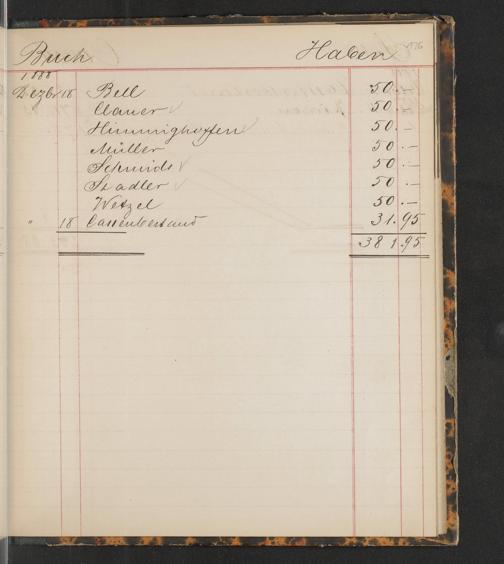 Buch. Haben
1888
Dezbr 18 Bell 50.—
Clauer ✓ 50.—
Himmighoffen ✓ 50.—
Müller 50.—
Schmids ✓ 50.—
Stadler ✓ 50.—
Wetzel 50.—
" 18 Cassenbestand 31.95
381.95